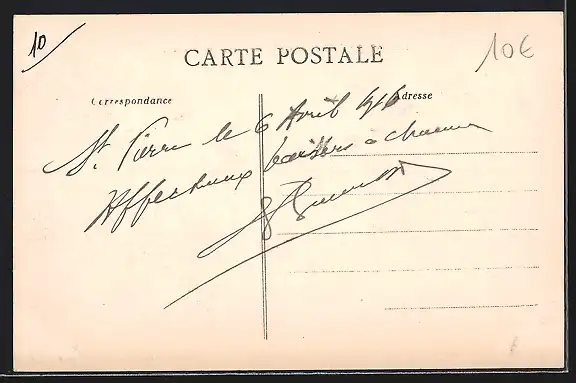 10
CARTE POSTALE
10€
Correspondance
Adresse
St. Pierre le 6 Avril 1916
Affectueux baisers a chacun